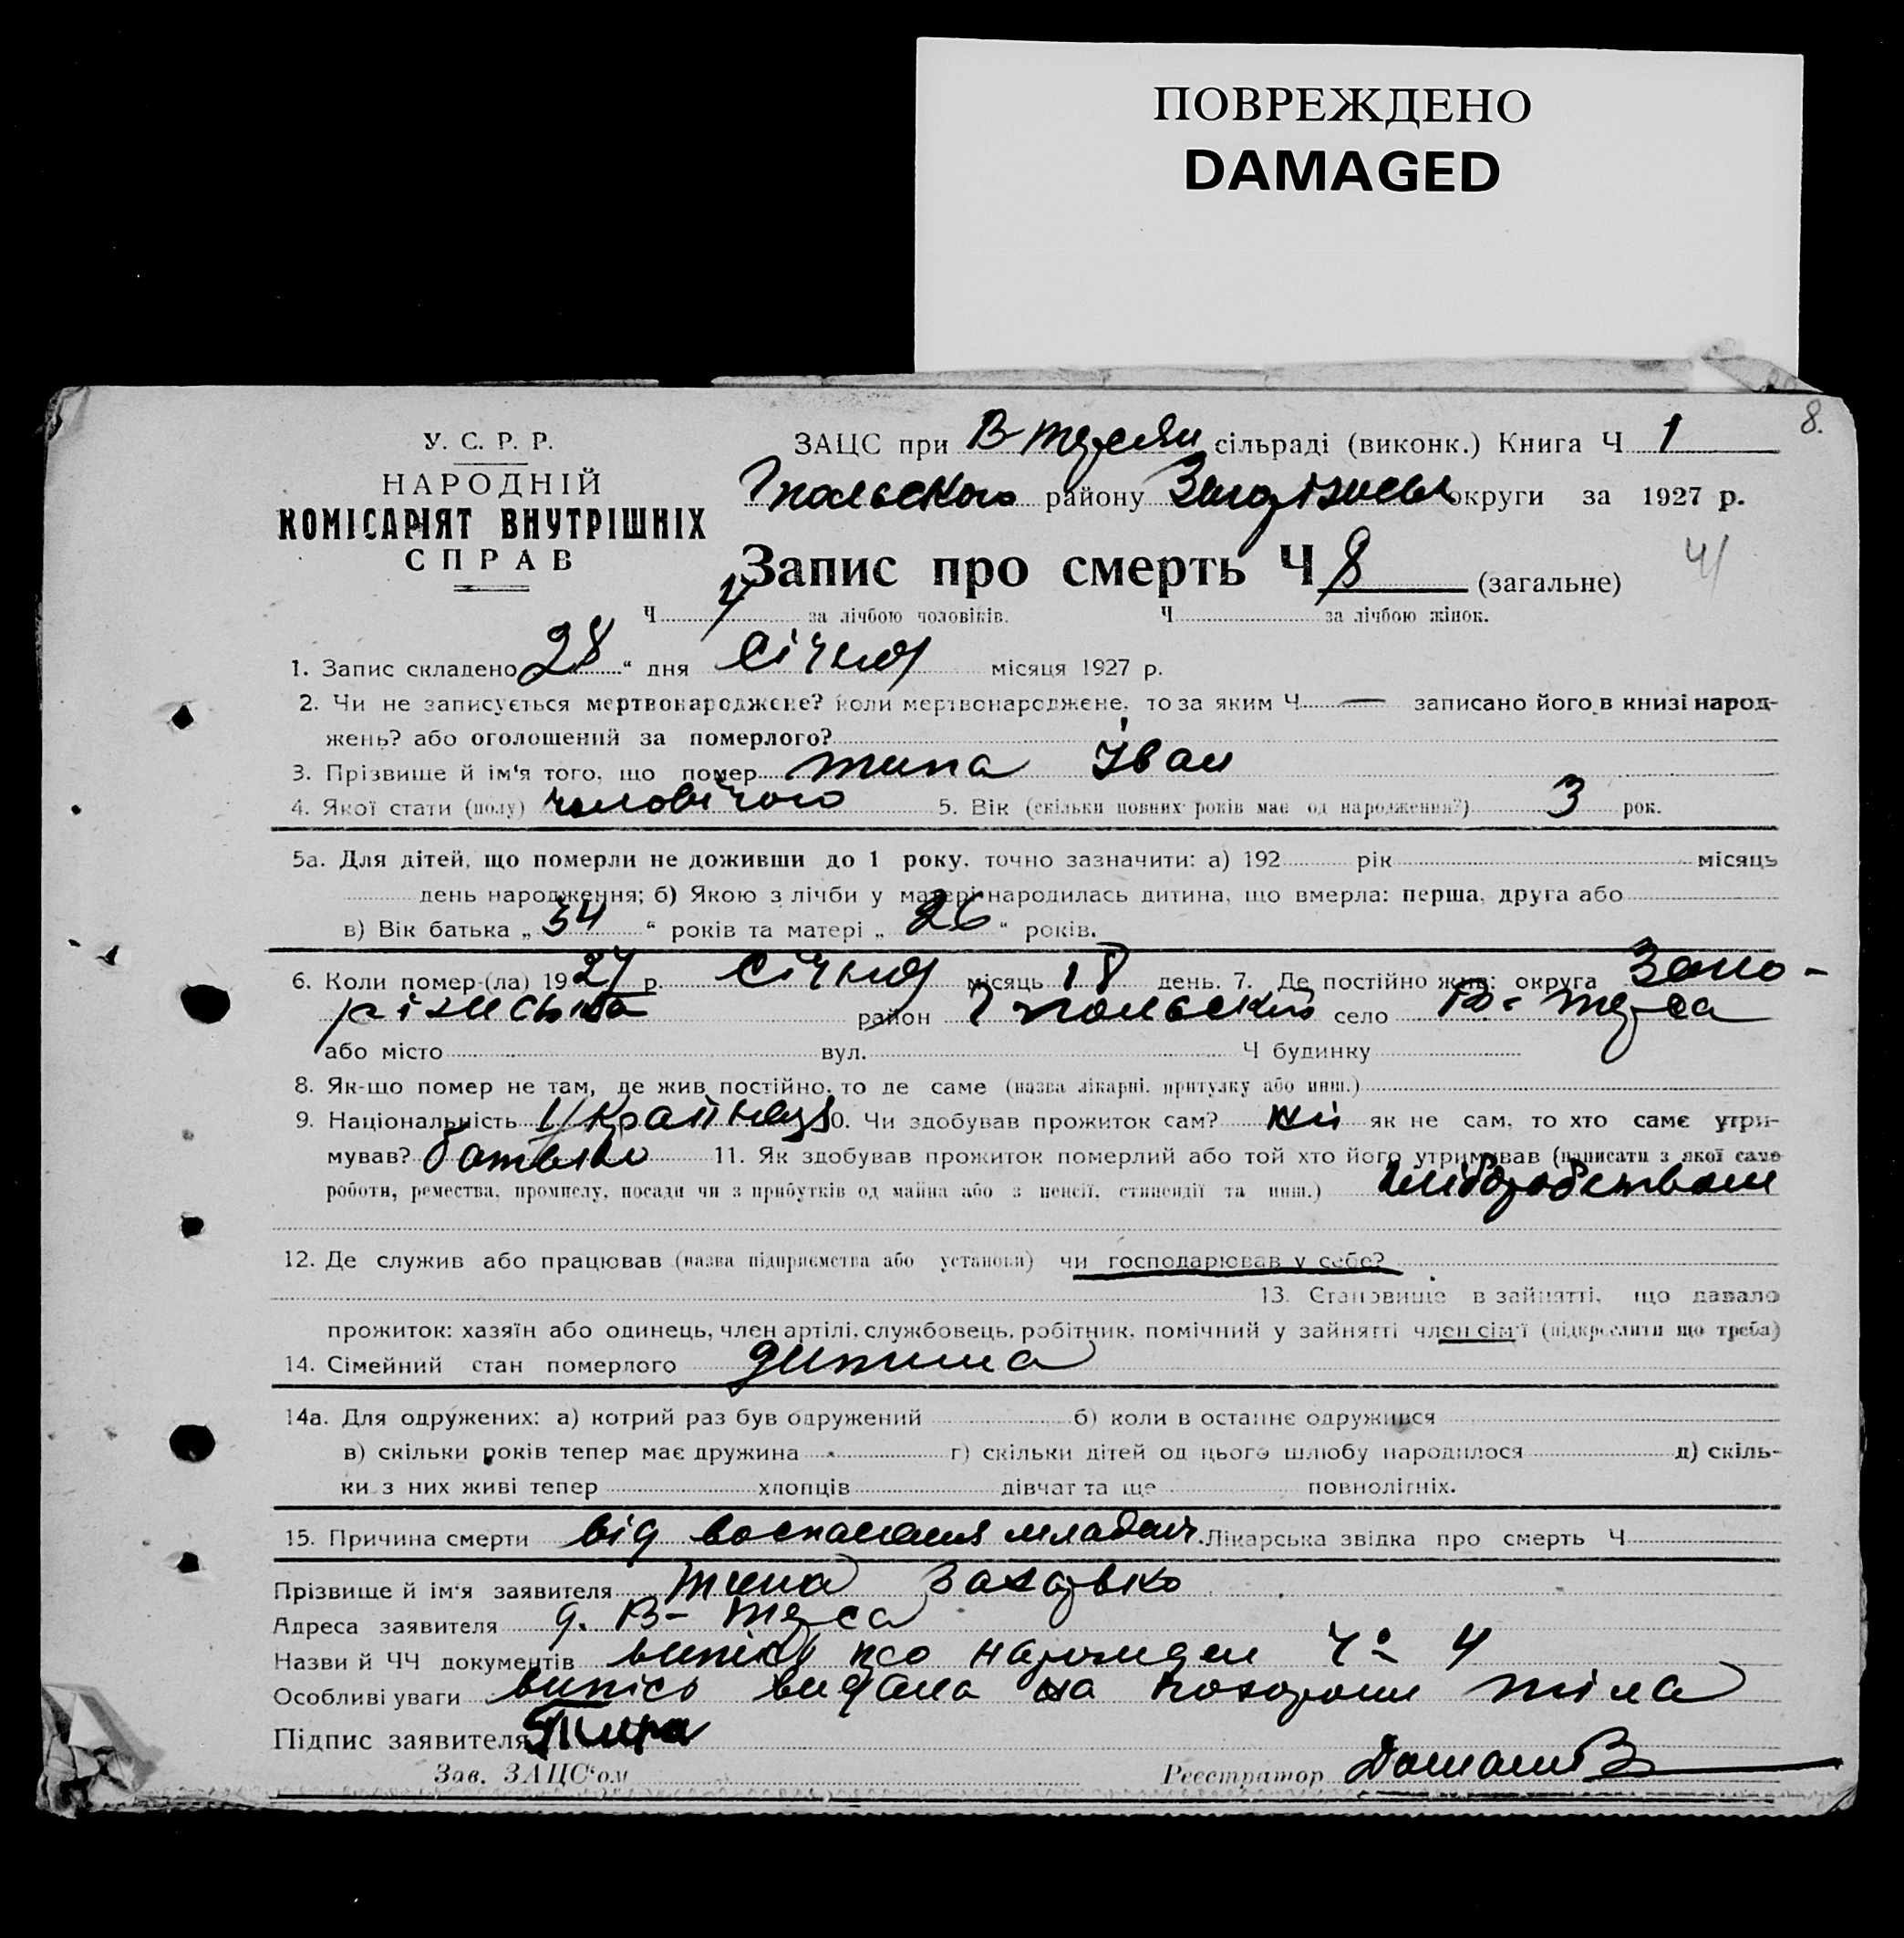 ПОВРЕЖДЕНО
DAMAGED
8.
У. С. Р. Р.
НАРОДНІЙ
КОМІСАРІЯТ ВНУТРІШНІХ
СПРАВ
ЗАЦС при сільраді (виконк.) Книга Ч 1
району округи за 1927 р.
Запис про смерть Ч 8 (загальне)
Ч 4 за лічбою чоловіків. Ч за лічбою жінок.
1. Запис складено 28 “ дня Січня місяця 1927 р.
2. Чи не записується мертвонароджене? коли мертвонароджене, то за яким Ч — записано його в книзі народ-
жень? або оголошений за померлого?
3. Прізвище й ім'я того, що помер Типа Іван
4. Якої стати (полу) чоловічого 5. Вік (скільки повних років має од народження?) 3 рок.
5а. Для дітей, що померли не доживши до 1 року, точно зазначити: а) 192 рік місяць
день народження; б) Якою з лічби у матері народилась дитина, що вмерла: перша, друга або
в) Вік батька „ 34 “ років та матері „ 26 “ років.
6. Коли помер-(ла) 1927 р. Січня місяць 18 день. 7. Де постійно жив: округа Запо-
різська район село
або місто вул. Ч будинку
8. Як-що помер не там, де жив постійно, то де саме (назва лікарні, притулку або инш.)
9. Національність Українец 10. Чи здобував прожиток сам? ні як не сам, то хто саме утри-
мував? батько 11. Як здобував прожиток померлий або той хто його утримував (написати з якої саме
роботи, ремества, промислу, посади чи з прибутків од майна або з пенсії, стипендії та инш.) хліборобством
12. Де служив або працював (назва підприємства або установи) чи господарював у себе?
13. Становище в зайнятті, що давало
прожиток: хазяїн або одинець, член артілі, службовець, робітник, помічний у зайнятті член сім'ї (підкреслити що треба)
14. Сімейний стан померлого дитина
14а. Для одружених: а) котрий раз був одружений б) коли в останнє одружився
в) скільки років тепер має дружина г) скільки дітей од цього шлюбу народилося д) скіль-
ки з них живі тепер хлопців дівчат та ще повнолітніх.
15. Причина смерти від воспаления Лікарська звідка про смерть Ч
Прізвище й ім'я заявителя Типа Захарко
Адреса заявителя
Назви й ЧЧ документів випісь про Ч° 4
Особливі уваги випісь видана на похорони тіла
Підпис заявителя Типа
Зав. ЗАЦС‘ом Реєстратор